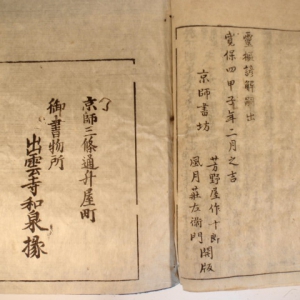 寛保四甲子年二月之吉
京師書坊
芳野屋作十郎
風月荘左衛門
開版
了
京師三條通升屋町
御書物所
出雲寺和泉掾